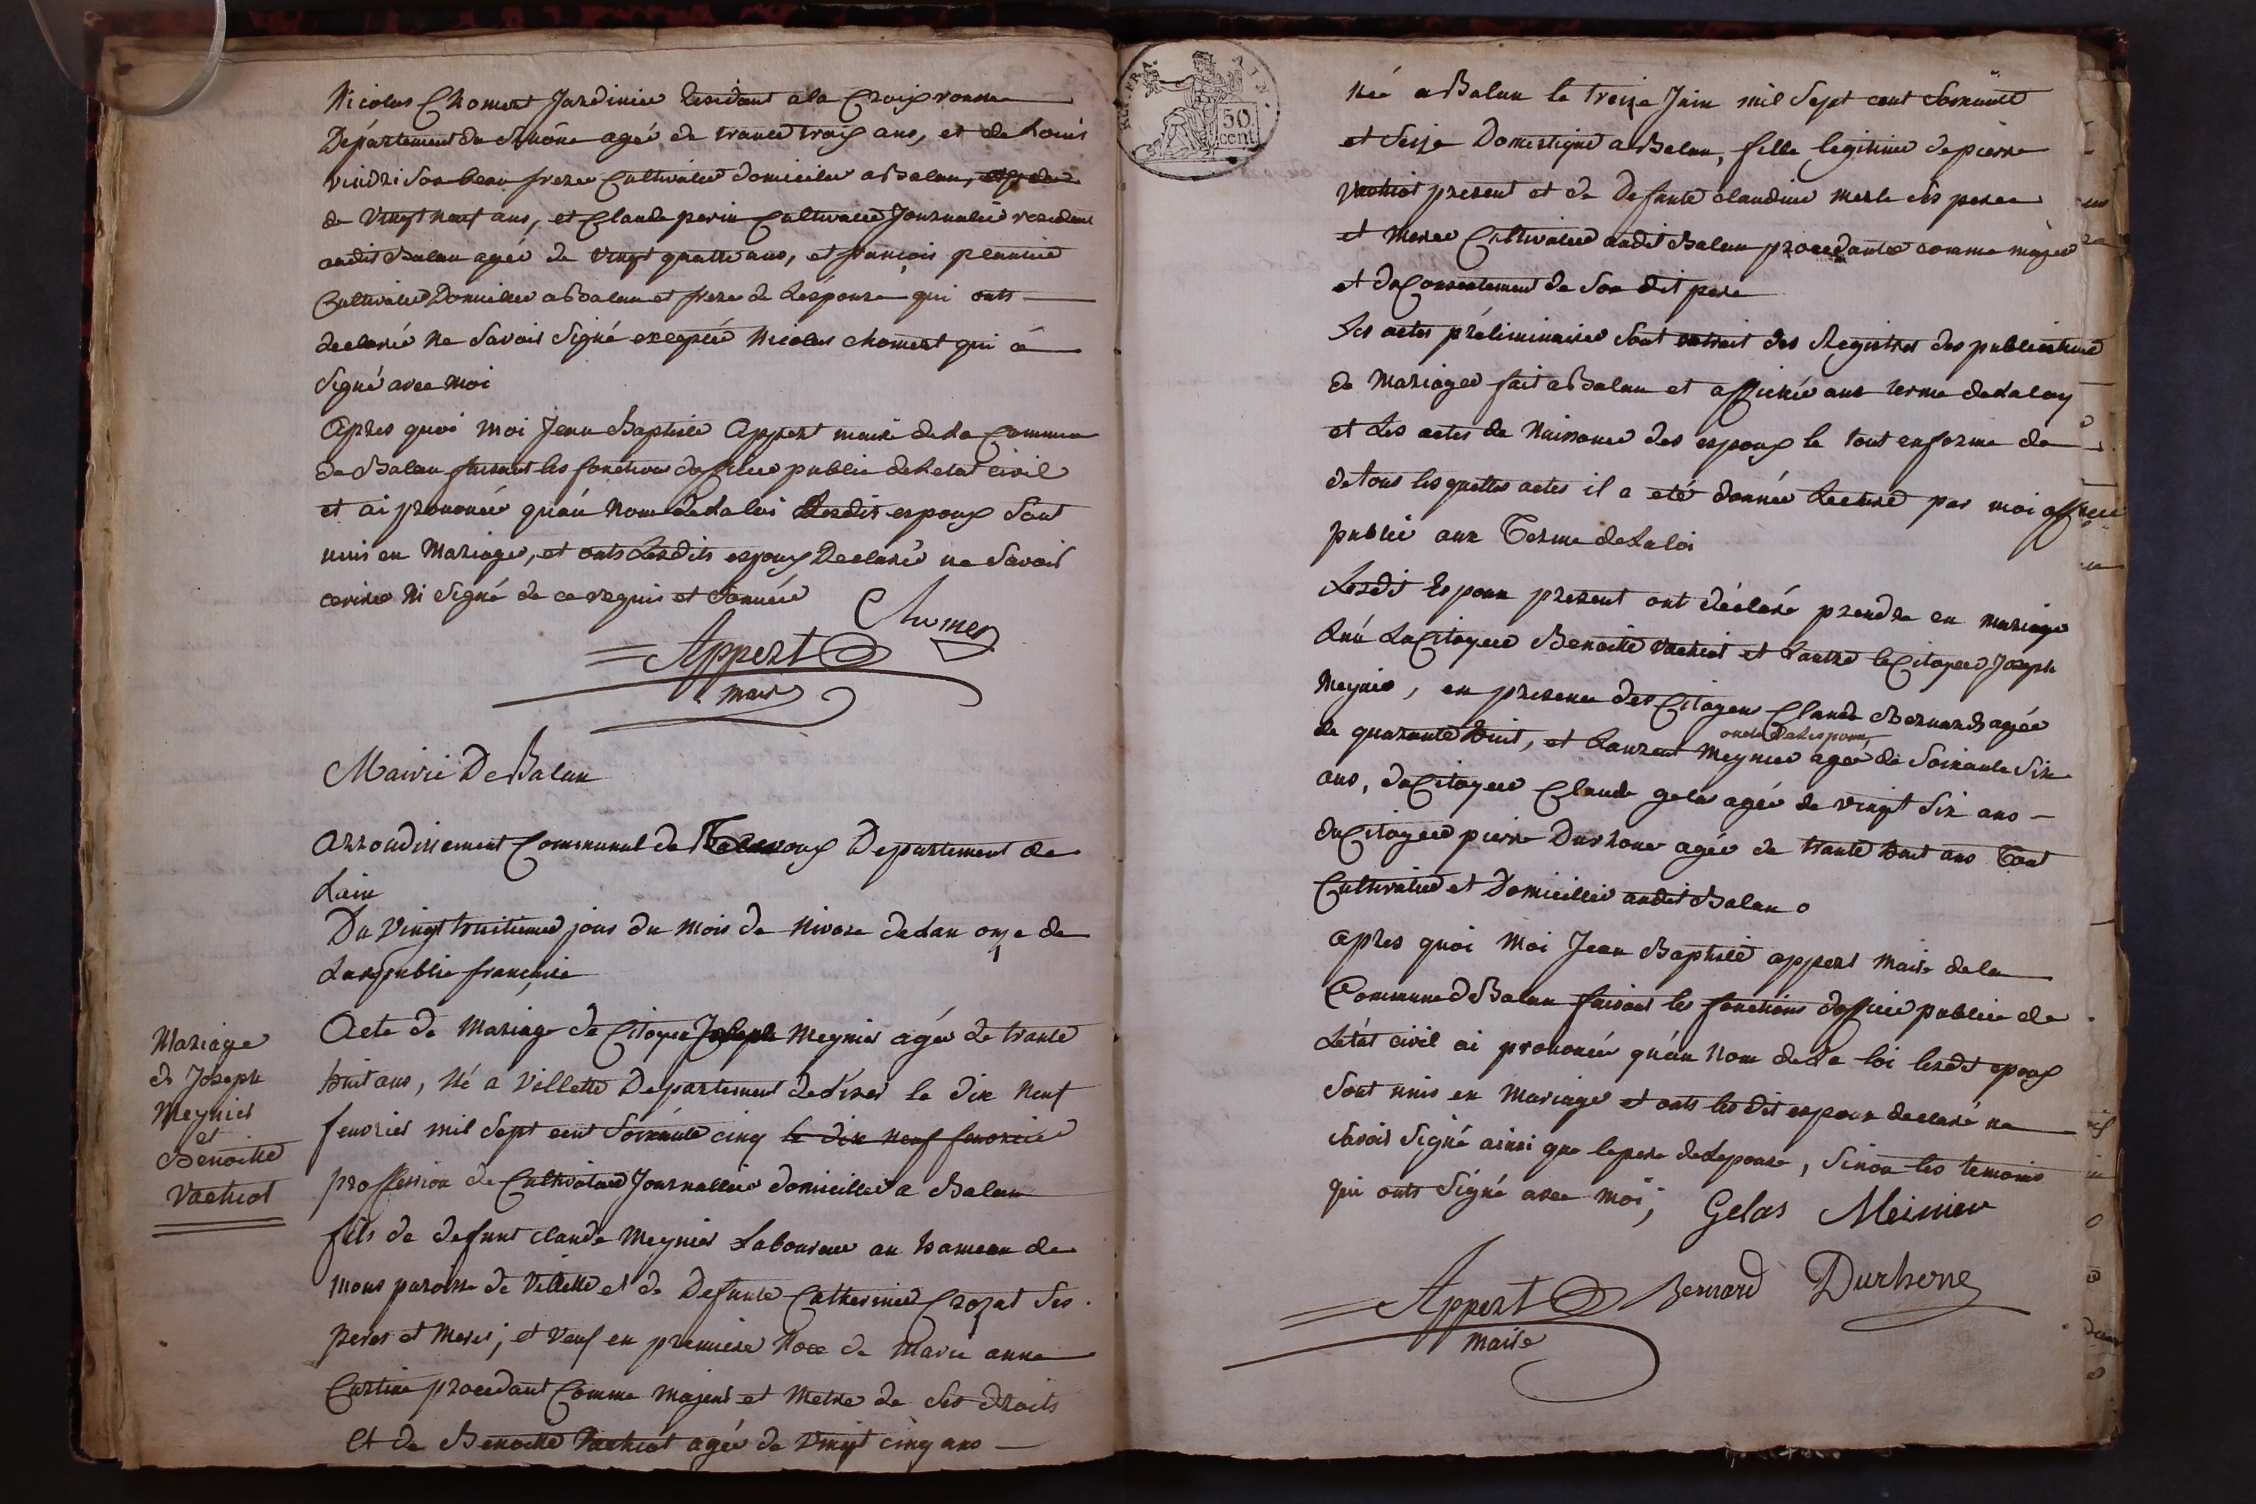 Nicolas Choment Jardinier Residant a la Croix rousse
Département du Rhône agée de trante trois ans, et de Louis
vindri son beau frere Cultivateur domicilier a Balan, agée de
de Vingt neuf ans, et Claude perin Cultivateur Journalié residant
audit Balan agée de Vingt quattre ans, et françois plantier
Cultivateur Domicilier a Balan et frere de Lespouse qui onts
declarée ne Savoir Signé exceptée Nicolas choment qui à
Signé avec moi
Apres quoi moi Jean Baptiste Appert maire de La Commune
de Balan faisant les fonctions dofficier public de Letat civil
et ai prononcée qu'au Nom de La loi Lesdits espoux Sont
unis en Mariage, et onts Lesdits espoux Declarée ne Savoir
ecrire Ni Signé de ce requis et Sommée
Chomer
Appert
maire
Mairie De Balan
Arrondissement Communal de Trevoux Departement de
Lain
Du Vingt huitieme jour du Mois de Nivose de Lan onze de
La republic française
Mariage
de Joseph
Meynier
et
Benoitte
Vachiot
Acte de Mariage de Citoyen Joseph Meynier agée de trante
huit ans, Né a Villette Departement de Liser le dix Neuf
fevrier mil Sept cent Soixante cinq le dix neuf fevrier
proffession de Cultivateur Journallier domicillier a Balan
fils de defunt claude Meynier Laboureur au hameau de
Mons paroisse de Villette et de Defunte Catherine Crozat Ses
peres et Meres; et Veuf en premiere Noce de Marie anne
Curtine procedant Comme Majeur et Metre de Ses droits
Et de Benoitte Vachiot agée de Vingt cinq ans
RÉP. FRA.
AIN.
50
cent
Née a Balan le treize Juin mil Sept cent Soixante
et Seize Domestique a Balan, fille legitime de pierre
Vachiot present et de Defunte claudine merle Ses pere
et Mere Cultivateur audit Balan procedante comme majeur
et du Consentement de Son dit pere
Les actes préliminaires Sont extrait des Registres des publications
de Mariages fait a Balan et affichée aux terme de La loy
et Les actes de Naissance des espoux le tout en forme de
de tous lesquelles actes il a eté donnée Lecture par moi officier
public aux Terme de La loi
Lesdit Espoux present ont déclaré prendre en mariage
Lun La Citoyene Benoitte Vachiot et Lautre le Citoyen Joseph
Meynier, en presence des Citoyen Claude Bernard agée
oncle de Lespoux
de quarante huit, et Laurent Meynier agée de Soixante Six
ans, du Citoyen Claude gelas agée de vingt Six ans
du Citoyen pierre Durhone agée de trante huit ans Tout
Cultivateur et Domicillier audit Balan
apres quoi Moi Jean Baptiste appert Maire de la
Commune de Balan faisant les fonctions dofficier public de
Létat civil ai prononcée qu'au Nom de La loi lesdit epoux
Sont unis en Mariage et onts les dit espoux declaré ne
Savoir Signé ainsi que le pere de Lepouse, Sinon les temoins
qui onts Signé avec moi;
Gelas Meinier
Appert
Bernard Durhone
Maire